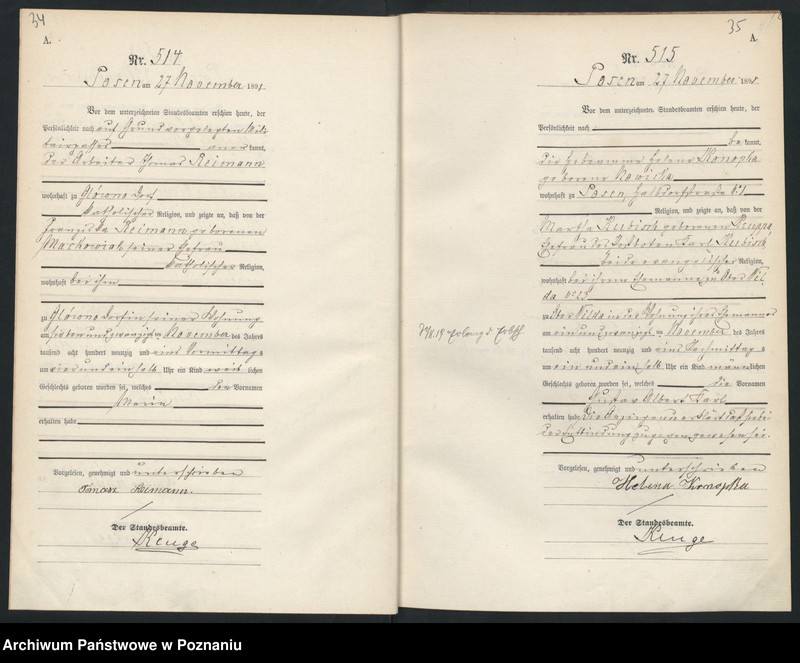 34
A.
Nr. 514
Posen am 27 November 1891
Vor dem unterzeichneten Standesbeamten erschien heute, der
Persönlichkeit nach auf Grund vorgelegten Mili-
tairpasses anerkannt,
der Arbeiter Thomas Reimann
wohnhaft zu Glówno Dorf
katholischer Religion, und zeigte an, daß von der
Franziska Reimann geborenen
Machowiak seiner Ehefrau
katholischer Religion,
wohnhaft bei ihm
zu Glówno Dorf in seiner Wohnung
am und zwanzigsten November des Jahres
tausend acht hundert neunzig und eins Vormittags
um vier und ein halb Uhr ein Kind weiblichen
Geschlechts geboren worden sei, welches den Vornamen
Maria
erhalten habe
Vorgelesen, genehmigt und unterschrieben
Tomasz Reimann.
Der Standesbeamte.
35
A.
Nr. 515
Posen am 27 November 1891
Vor dem unterzeichneten Standesbeamten erschien heute, der
Persönlichkeit nach
bekannt,
die Hebeamme Helena Konopka
geborene Nawicka
wohnhaft zu Posen, Halbdorfstraße
Religion, und zeigte an, daß von der
Martha Kubisch geborenen
Ehefrau des Postboten Karl Kubisch
beide evangelischer Religion,
wohnhaft bei ihrem Ehemanne zu Ober Wil-
da No 13
zu Ober Wilda in der Wohnung ihres Ehemannes
am ein und zwanzigsten November des Jahres
tausend acht hundert neunzig und eins Nachmittags
um ein und ein halb Uhr ein Kind männlichen
Geschlechts geboren worden sei, welches die Vornamen
Gustav Albert Karl
erhalten habe. Die Anzeigende erklärt daß sie bei
der Entbindung zugegen gewesen sei.
Vorgelesen, genehmigt und unterschrieben
Helena Konopka
Der Standesbeamte.
Archiwum Państwowe w Poznaniu